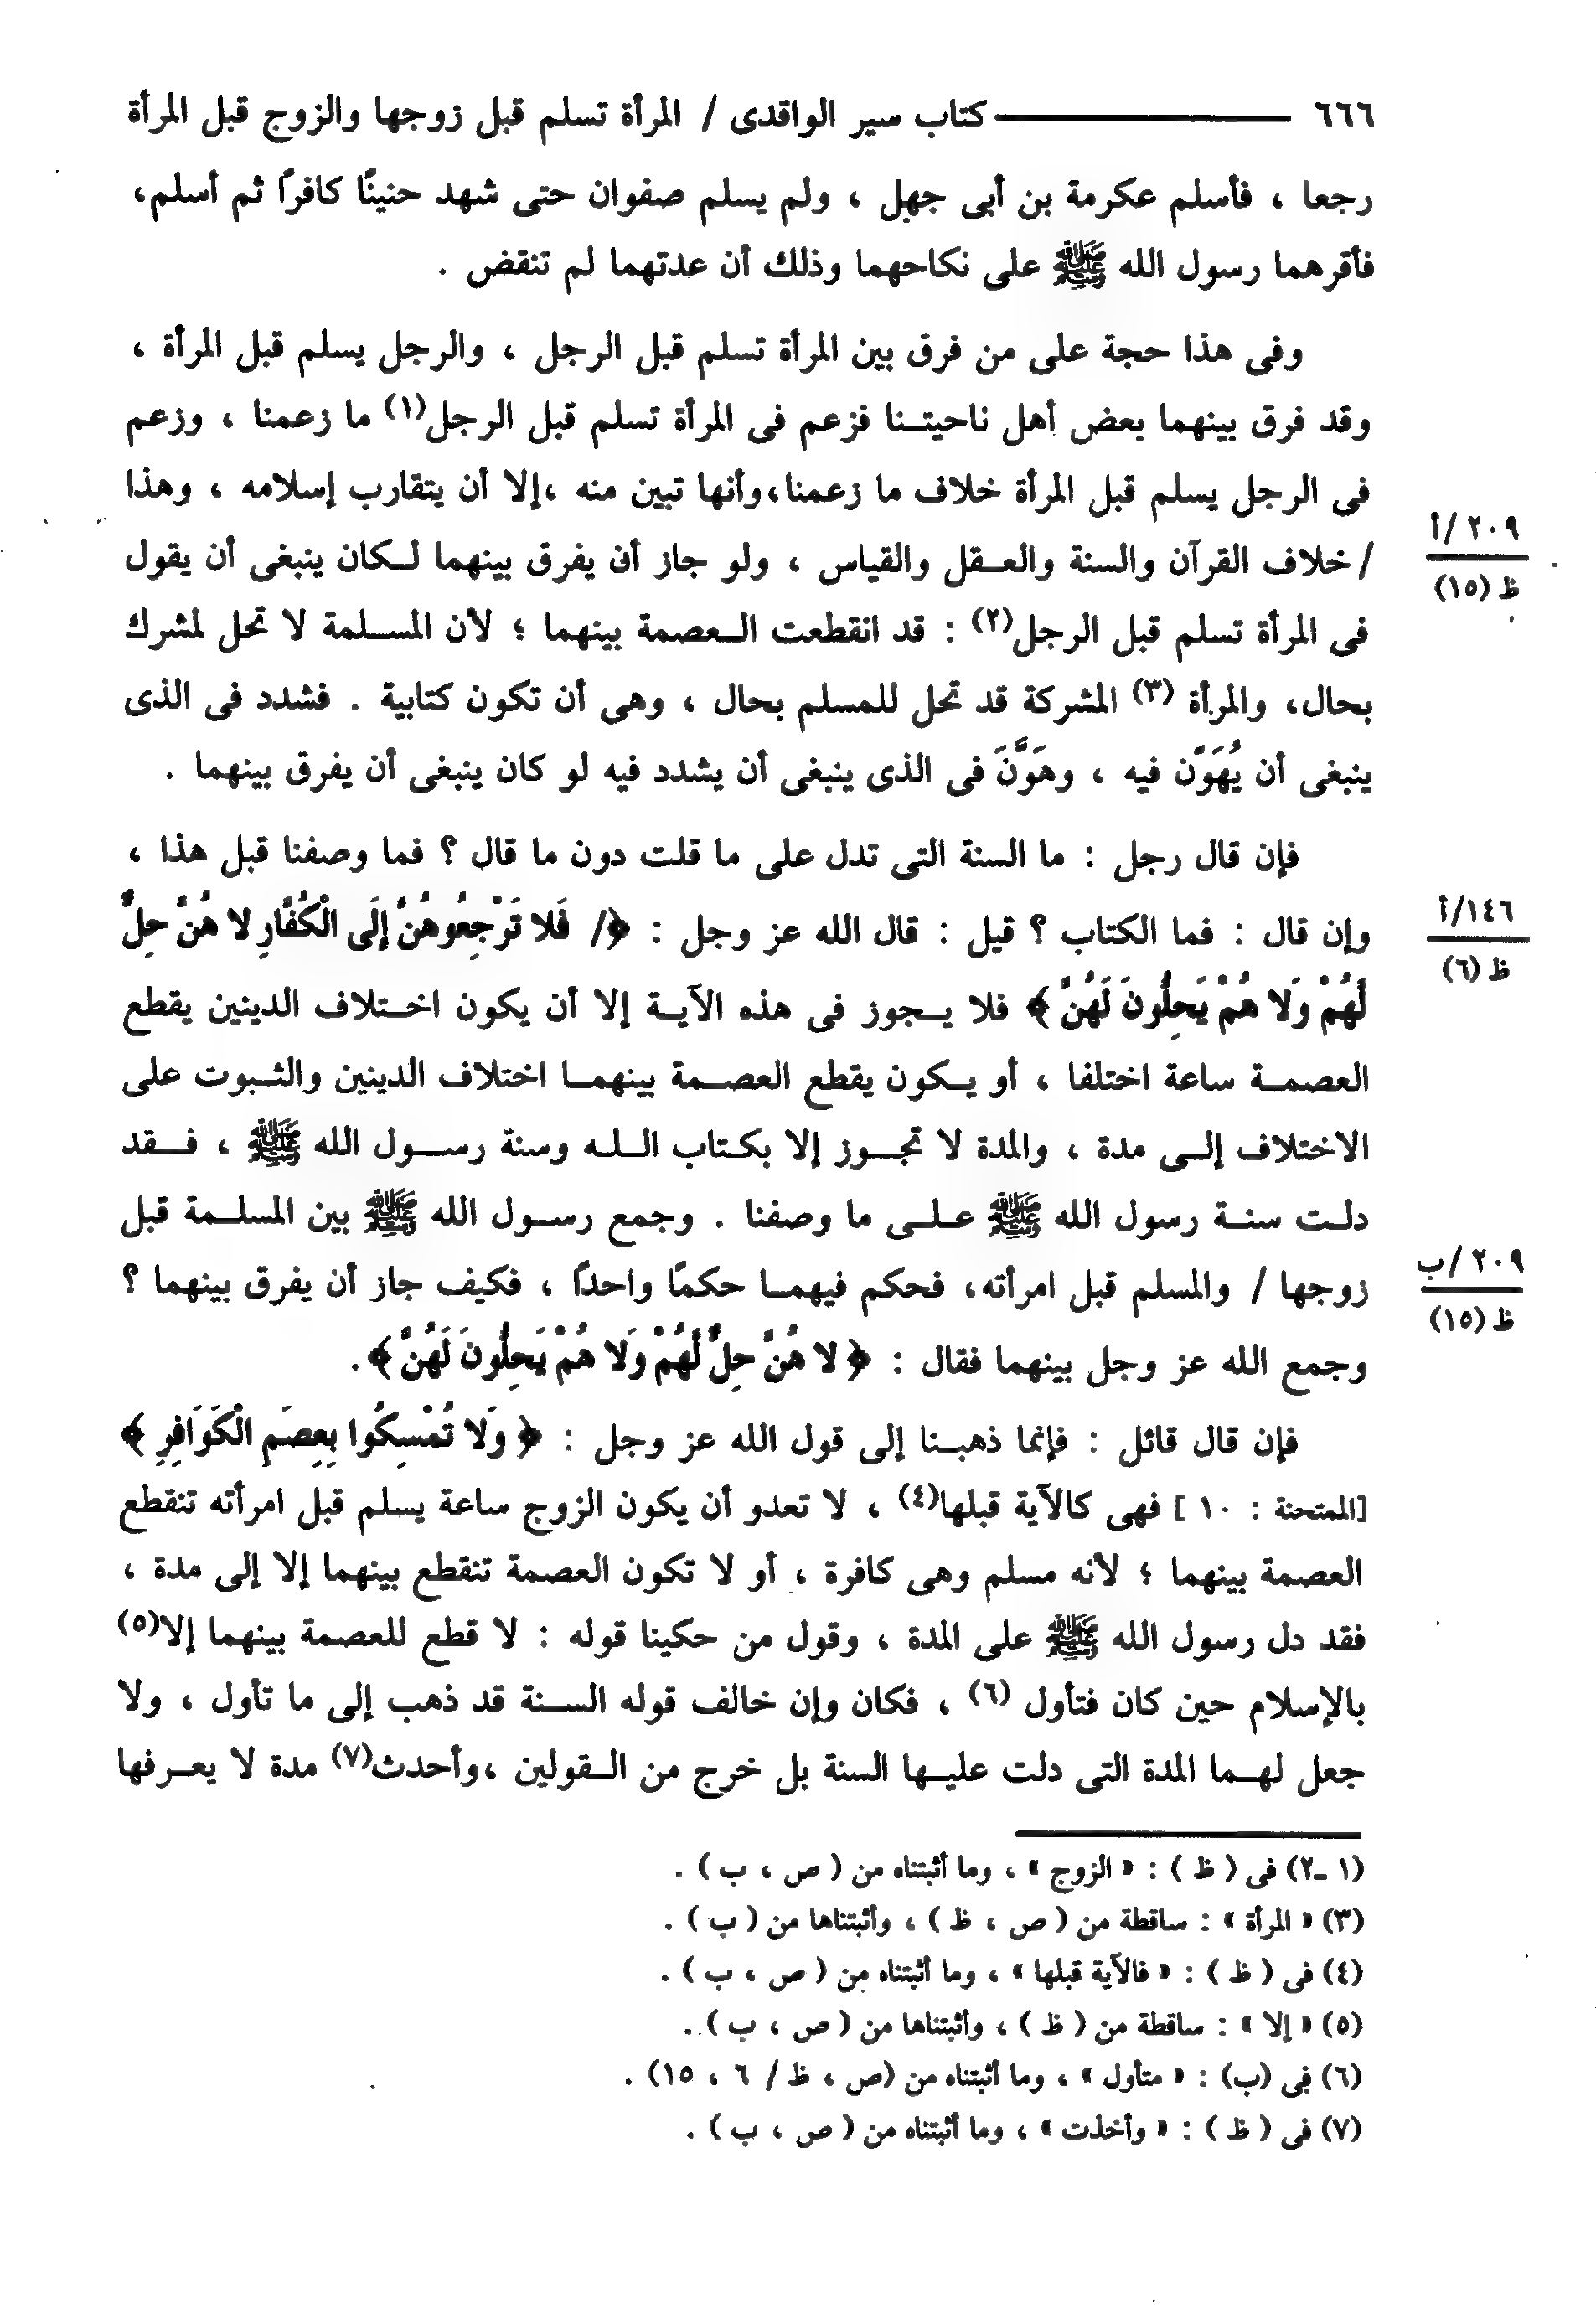 ٦٦٦ كتاب سير الواقدى / المرأة تسلم قبل زوجها والزوج قبل المرأة
رجعا ، فأسلم عكرمة بن أبى جهل ، ولم يسلم صفوان حتى شهد حنينًا كافرًا ثم أسلم،
فأقرهما رسول الله ﷺ على نكاحهما وذلك أن عدتهما لم تنقض .
وفى هذا حجة على من فرق بين المرأة تسلم قبل الرجل ، والرجل يسلم قبل المرأة ،
وقد فرق بينهما بعض أهل ناحيتنا فزعم فى المرأة تسلم قبل الرجل(١) ما زعمنا ، وزعم
فى الرجل يسلم قبل المرأة خلاف ما زعمنا،وأنها تبين منه ،إلا أن يتقارب إسلامه ، وهذا
٢٠٩ /أ
/ خلاف القرآن والسنة والعقل والقياس ، ولو جاز أن يفرق بينهما لكان ينبغى أن يقول
ظ (١٥)
فى المرأة تسلم قبل الرجل(٢) : قد انقطعت العصمة بينهما ؛ لأن المسلمة لا تحل لمشرك
بحال، والمرأة (٣) المشركة قد تحل للمسلم بحال ، وهى أن تكون كتابية . فشدد فى الذى
ينبغى أن يُهَوَّن فيه ، وهَوَّنَ فى الذى ينبغى أن يشدد فيه لو كان ينبغى أن يفرق بينهما .
فإن قال رجل : ما السنة التى تدل على ما قلت دون ما قال ؟ فما وصفنا قبل هذا ،
١٤٦/أ
وإن قال : فما الكتاب ؟ قيل : قال الله عز وجل : ﴿/ فَلا تَرْجِعُوهُنَّ إِلَى الْكُفَّارِ لا هُنَّ حِلٌّ
ظ (٦)
لَّهُمْ وَلا هُمْ يَحِلُّونَ لَهُنَّ ﴾ فلا يجوز فى هذه الآية إلا أن يكون اختلاف الدينين يقطع
العصمة ساعة اختلفا ، أو يكون يقطع العصمة بينهما اختلاف الدينين والثبوت على
الاختلاف إلى مدة ، والمدة لا تجوز إلا بكتاب الله وسنة رسول الله ﷺ ، فقد
دلت سنة رسول الله ﷺ على ما وصفنا . وجمع رسول الله ﷺ بين المسلمة قبل
٢٠٩ /ب
زوجها / والمسلم قبل امرأته، فحكم فيهما حكمًا واحدًا ، فكيف جاز أن يفرق بينهما ؟
ظ (١٥)
وجمع الله عز وجل بينهما فقال : ﴿ لا هُنَّ حِلٌّ لَّهُمْ وَلا هُمْ يَحِلُّونَ لَهُنَّ ﴾.
فإن قال قائل : فإنما ذهبنا إلى قول الله عز وجل : ﴿ وَلا تُمْسِكُوا بِعِصَمِ الْكَوَافِرِ ﴾
[الممتحنة : ١٠ ] فهى كالآية قبلها(٤) ، لا تعدو أن يكون الزوج ساعة يسلم قبل امرأته تنقطع
العصمة بينهما ؛ لأنه مسلم وهى كافرة ، أو لا تكون العصمة تنقطع بينهما إلا إلى مدة ،
فقد دل رسول الله ﷺ على المدة ، وقول من حكينا قوله : لا قطع للعصمة بينهما إلا(٥)
بالإسلام حين كان فتأول (٦) ، فكان وإن خالف قوله السنة قد ذهب إلى ما تأول ، ولا
جعل لهما المدة التى دلت عليها السنة بل خرج من القولين ،وأحدث(٧) مدة لا يعرفها
(١ ـ٢) فى ( ظ ) : « الزوج » ، وما أثبتناه من ( ص ، ب ) .
(٣) « المرأة » : ساقطة من ( ص ، ظ ) ، وأثبتناها من ( ب ) .
(٤) فى ( ظ ) : « فالآية قبلها » ، وما أثبتناه من ( ص ، ب ) .
(٥) « إلا » : ساقطة من ( ظ ) ، وأثبتناها من ( ص ، ب ) .
(٦) فى (ب) : « متأول » ، وما أثبتناه من (ص ، ظ / ٦ ، ١٥) .
(٧) فى ( ظ ) : « وأخذت » ، وما أثبتناه من ( ص ، ب ) .